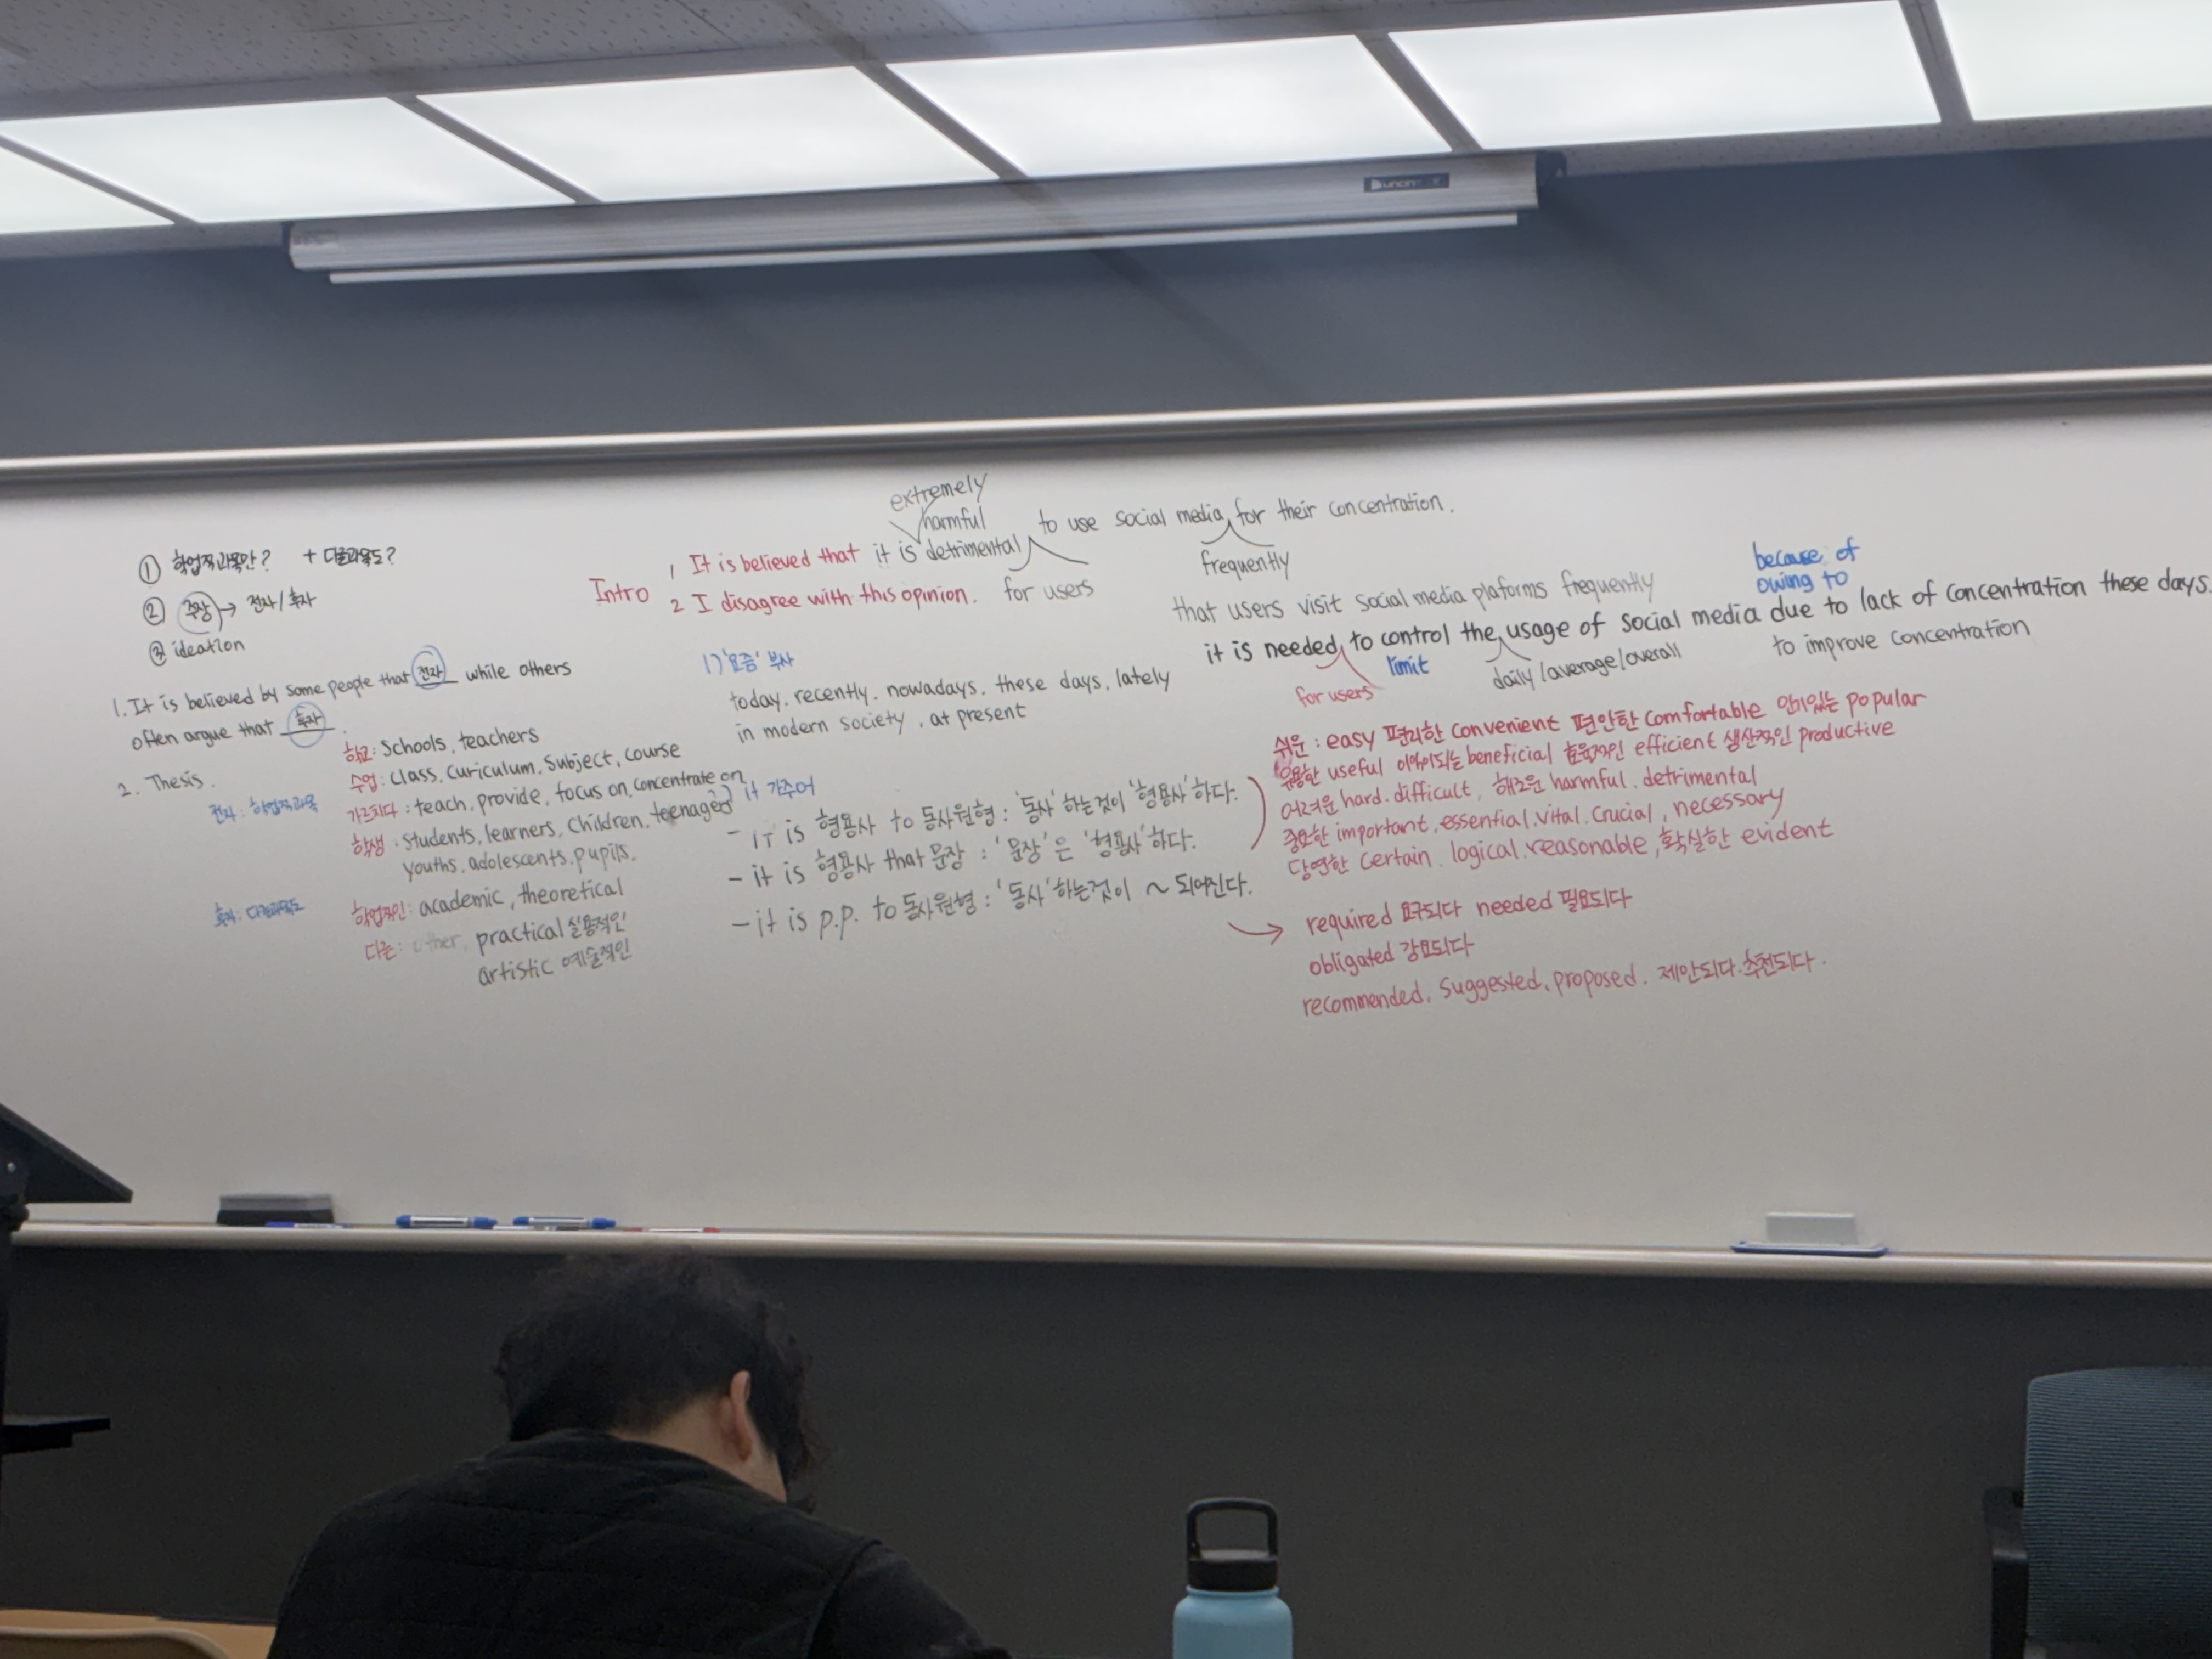 ① 학업적과목만? + 다른과목도?
② 주장 → 전자/후자
③ ideation
1. It is believed by some people that 전자 while others
often argue that 후자.
2. Thesis.
전자: 학업적과목
후자: 다른과목도
학교: Schools, teachers
수업: class, curiculum, subject, course
가르치다: teach, provide, focus on, concentrate on
학생: students, learners, children, teenagers
youths, adolescents, pupils.
학업적인: academic, theoretical
다른: other, practical 실용적인
artistic 예술적인
Intro
1 It is believed that it is detrimental to use social media for their concentration.
extremely
harmful
for users
frequently
2 I disagree with this opinion.
that users visit social media plaforms frequently
it is needed to control the usage of social media due to lack of concentration these days.
because of
owing to
for users
limit
daily/average/overall
to improve concentration
1) '요즘' 부사
today, recently, nowadays, these days, lately
in modern society, at present
2) it 가주어
- it is 형용사 to 동사원형 : '동사'하는것이 '형용사'하다.
- it is 형용사 that 문장 : '문장'은 '형용사'하다.
- it is p.p. to 동사원형 : '동사'하는것이 ~ 되어진다.
쉬운 : easy 편리한 convenient 편안한 comfortable 인기있는 popular
유용한 useful 이익이되는 beneficial 효율적인 efficient 생산적인 productive
어려운 hard. difficult, 해로운 harmful. detrimental
중요한 important, essential. vital. crucial, necessary
당연한 certain. logical. reasonable, 확실한 evident
→ required 요구되다 needed 필요되다
obligated 강요되다
recommended, suggested, proposed. 제안되다. 추천되다.